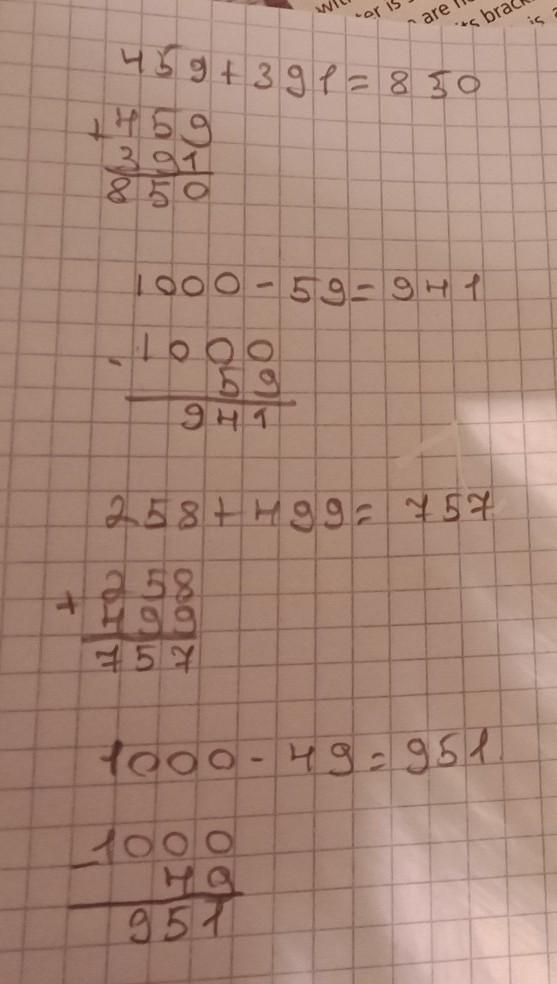 459+391=850
+459
391
850
1000-59=941
-1000
59
941
258+499=757
+258
499
757
1000-49=951
-1000
49
951